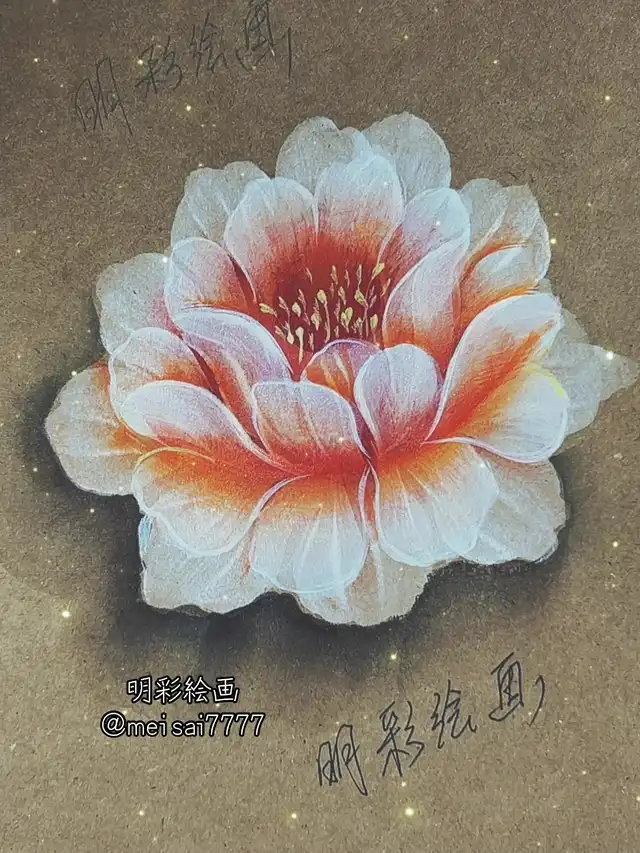 明彩绘画
明彩絵画
@meisai7777
明彩绘画